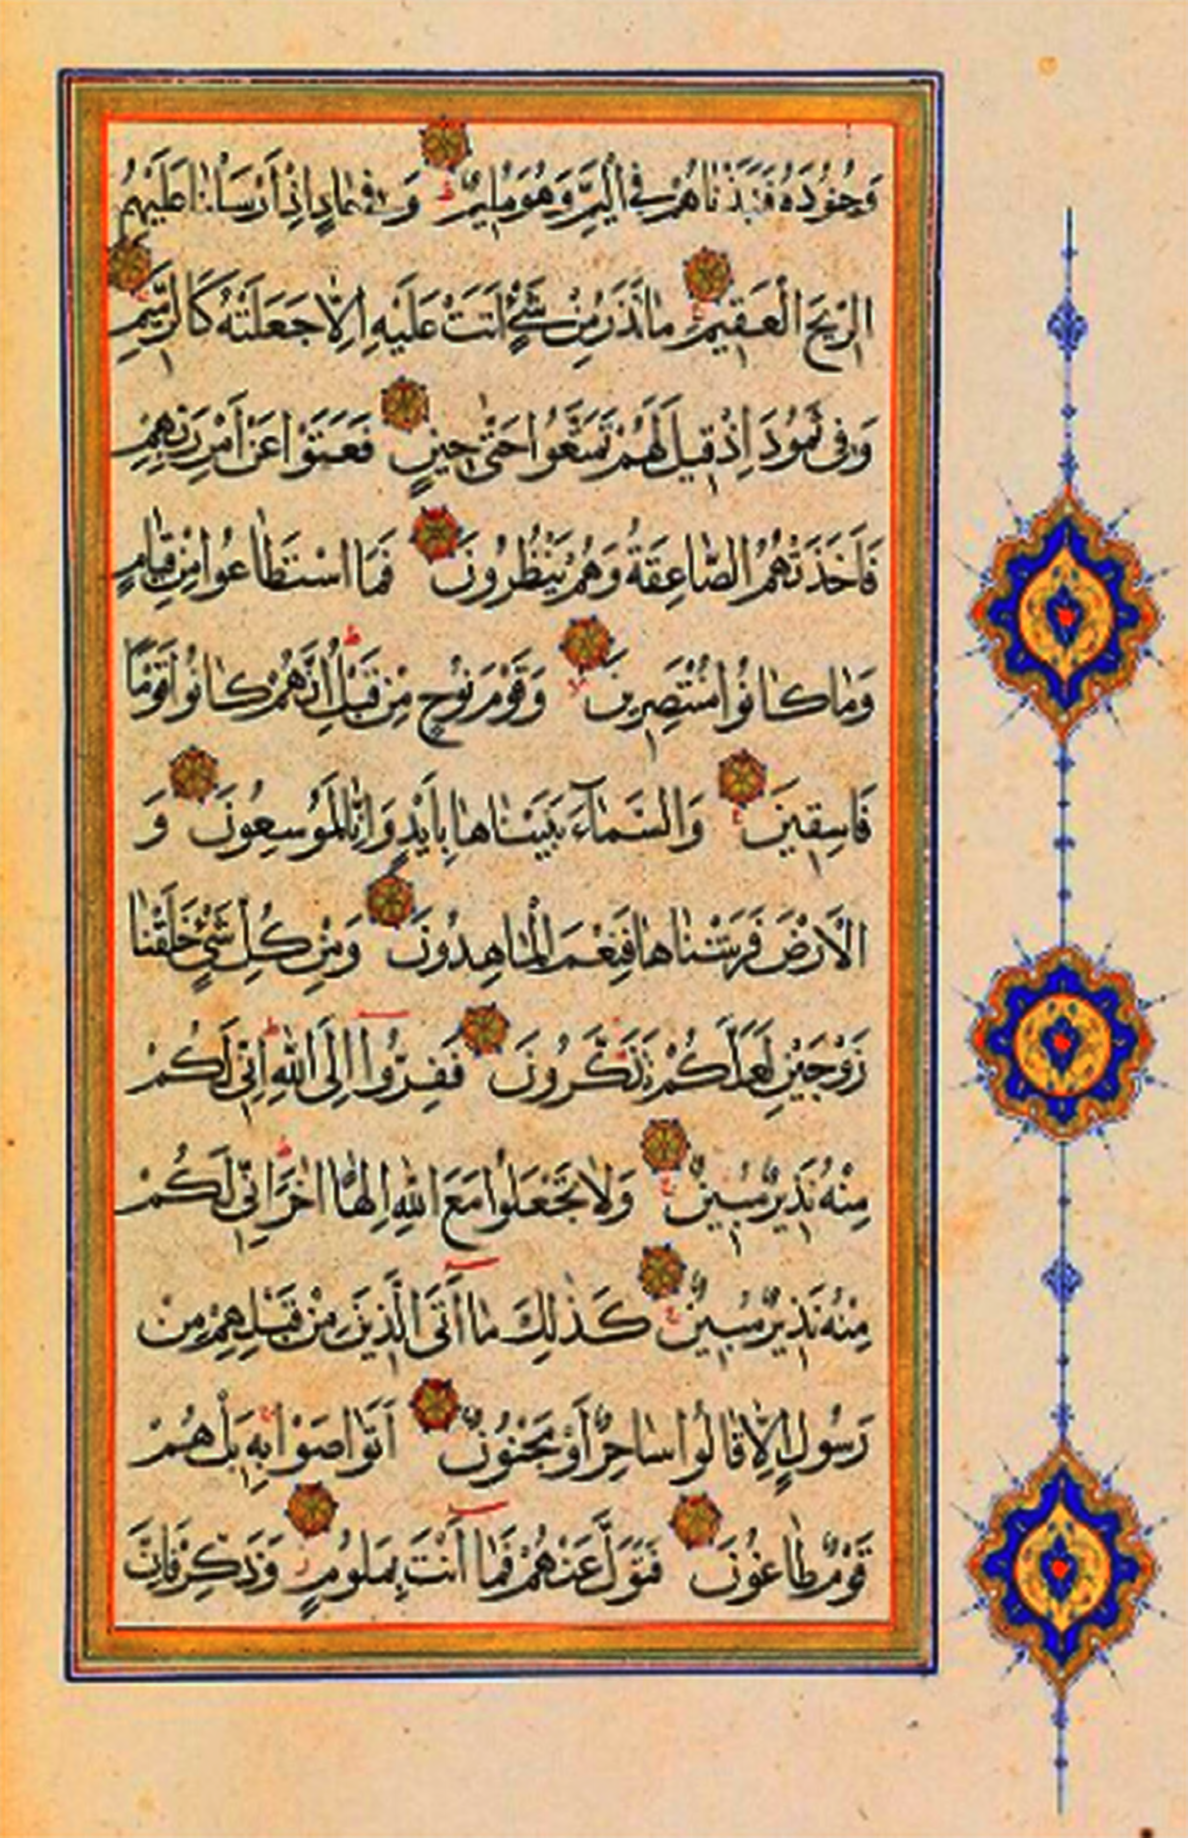 وَجُنُودَهُ فَنَبَذْنَاهُمْ فِي الْيَمِّ وَهُوَ مُلِيمٌ وَفِي عَادٍ اِذْ اَرْسَلْنَا عَلَيْهِمُ
الرِّيحَ الْعَقِيمَ مَا تَذَرُ مِنْ شَيْءٍ اَتَتْ عَلَيْهِ اِلَّا جَعَلَتْهُ كَالرَّمِيمِ
وَفِي ثَمُودَ اِذْ قِيلَ لَهُمْ تَمَتَّعُوا حَتّٰى حِينٍ فَعَتَوْا عَنْ اَمْرِ رَبِّهِمْ
فَاَخَذَتْهُمُ الصَّاعِقَةُ وَهُمْ يَنْظُرُونَ فَمَا اسْتَطَاعُوا مِنْ قِيَامٍ
وَمَا كَانُوا مُنْتَصِرِينَ وَقَوْمَ نُوحٍ مِنْ قَبْلُ اِنَّهُمْ كَانُوا قَوْمًا
فَاسِقِينَ وَالسَّمَآءَ بَنَيْنَاهَا بِاَيْدٍ وَاِنَّا لَمُوسِعُونَ وَ
الْاَرْضَ فَرَشْنَاهَا فَنِعْمَ الْمَاهِدُونَ وَمِنْ كُلِّ شَيْءٍ خَلَقْنَا
زَوْجَيْنِ لَعَلَّكُمْ تَذَكَّرُونَ فَفِرُّوا اِلَى اللّٰهِ اِنِّي لَكُمْ
مِنْهُ نَذِيرٌ مُبِينٌ وَلَا تَجْعَلُوا مَعَ اللّٰهِ اِلٰهًا اٰخَرَ اِنِّي لَكُمْ
مِنْهُ نَذِيرٌ مُبِينٌ كَذٰلِكَ مَا اَتَى الَّذِينَ مِنْ قَبْلِهِمْ مِنْ
رَسُولٍ اِلَّا قَالُوا سَاحِرٌ اَوْ مَجْنُونٌ اَتَوَاصَوْا بِهِ بَلْ هُمْ
قَوْمٌ طَاغُونَ فَتَوَلَّ عَنْهُمْ فَمَا اَنْتَ بِمَلُومٍ وَذَكِّرْ فَاِنَّ